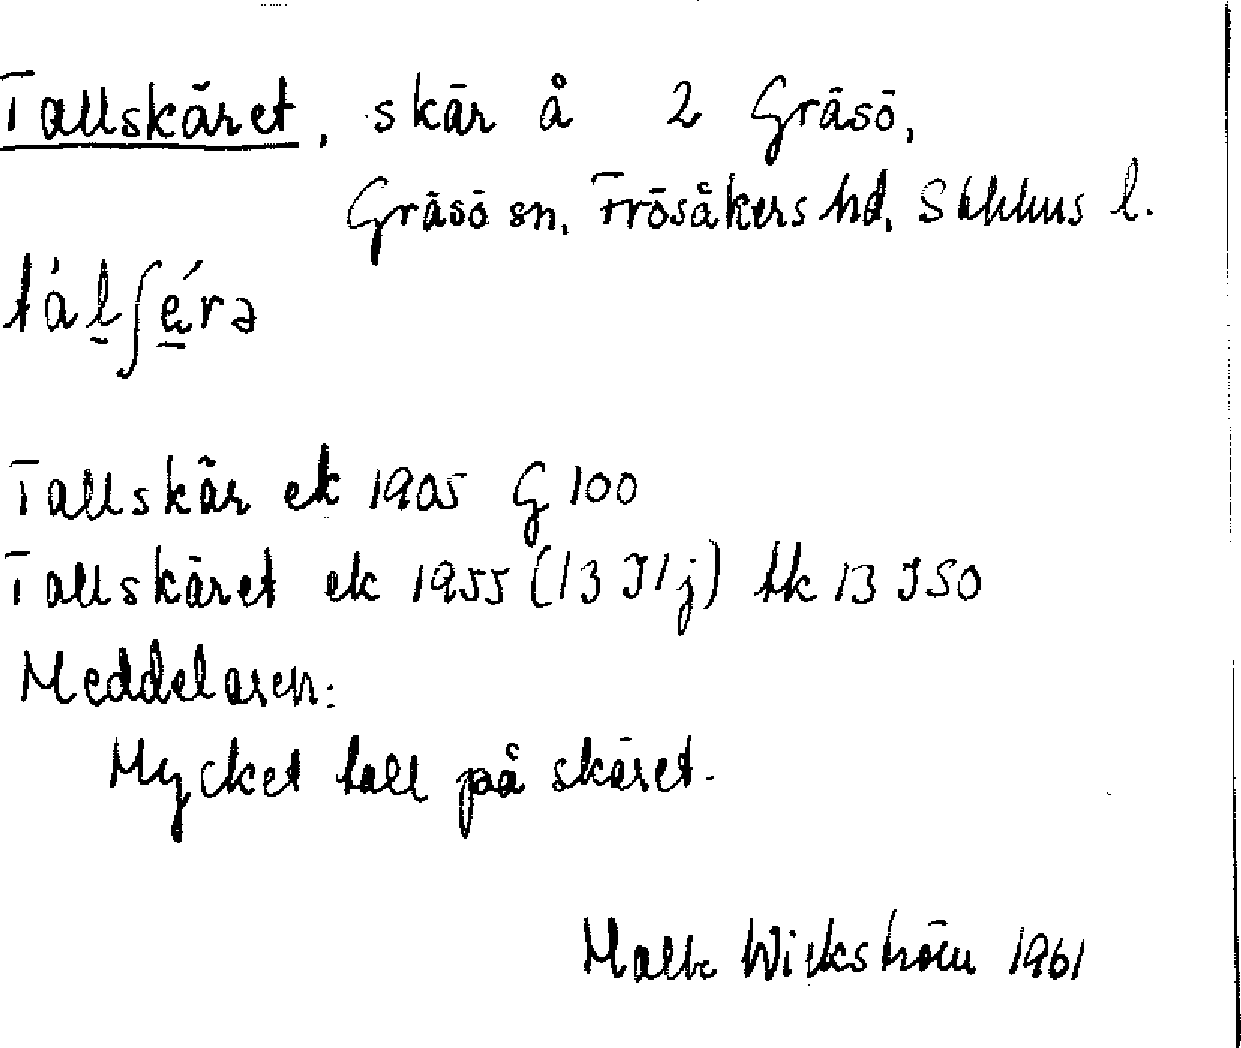 Tallskäret, skär å 2 Gräsö,
Gräsö sn, Frösåkers hd, Sthlms l.
tálʃérə
Tallskär ek 1905 G 100
Tallskäret ek 1955 (13 I 1j) tk 13 I SO
Meddelaren:
Mycket tall på skäret.
Malte Wickström 1961